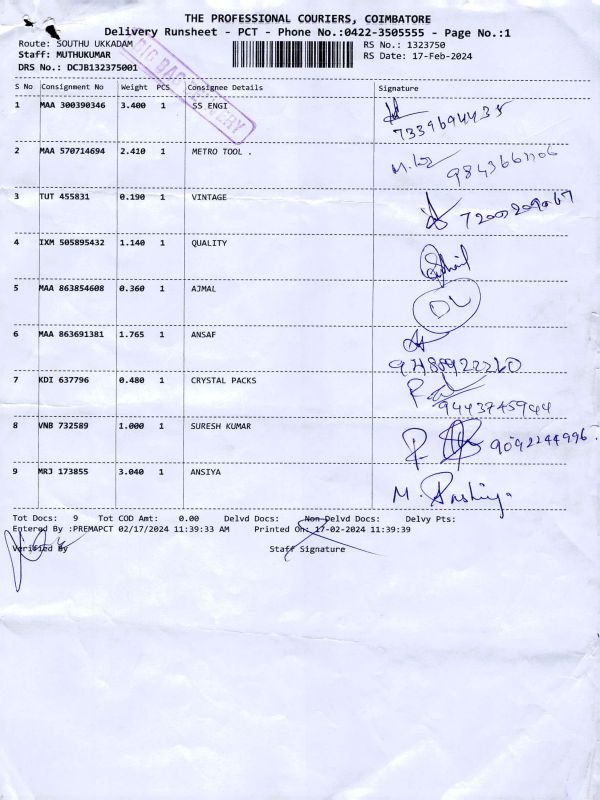 THE PROFESSIONAL COURIERS, COIMBATORE
Delivery Runsheet - PCT - Phone No.:0422-3505555 - Page No.:1
Route: SOUTHU UKKADAM RS No.: 1323750
Staff: MUTHUKUMAR RS Date: 17-Feb-2024
DRS No.: DCJB132375001
BIG BAG DELIVERY
S No Consignment No Weight PCS Consignee Details Signature
1 MAA 300390346 3.400 1 SS ENGI
7339694435
2 MAA 570714694 2.410 1 METRO TOOL .
3 TUT 455831 0.190 1 VINTAGE
4 IXM 505895432 1.140 1 QUALITY
5 MAA 863854608 0.360 1 AJMAL
DL
6 MAA 863691381 1.765 1 ANSAF
7 KDI 637796 0.480 1 CRYSTAL PACKS
9443745944
8 VNB 732589 1.000 1 SURESH KUMAR
9092244996
9 MRJ 173855 3.040 1 ANSIYA
Tot Docs: 9 Tot COD Amt: 0.00 Delvd Docs: Non Delvd Docs: Delvy Pts:
Entered By :PREMAPCT 02/17/2024 11:39:33 AM Printed On: 17-02-2024 11:39:39
Verified By Staff Signature